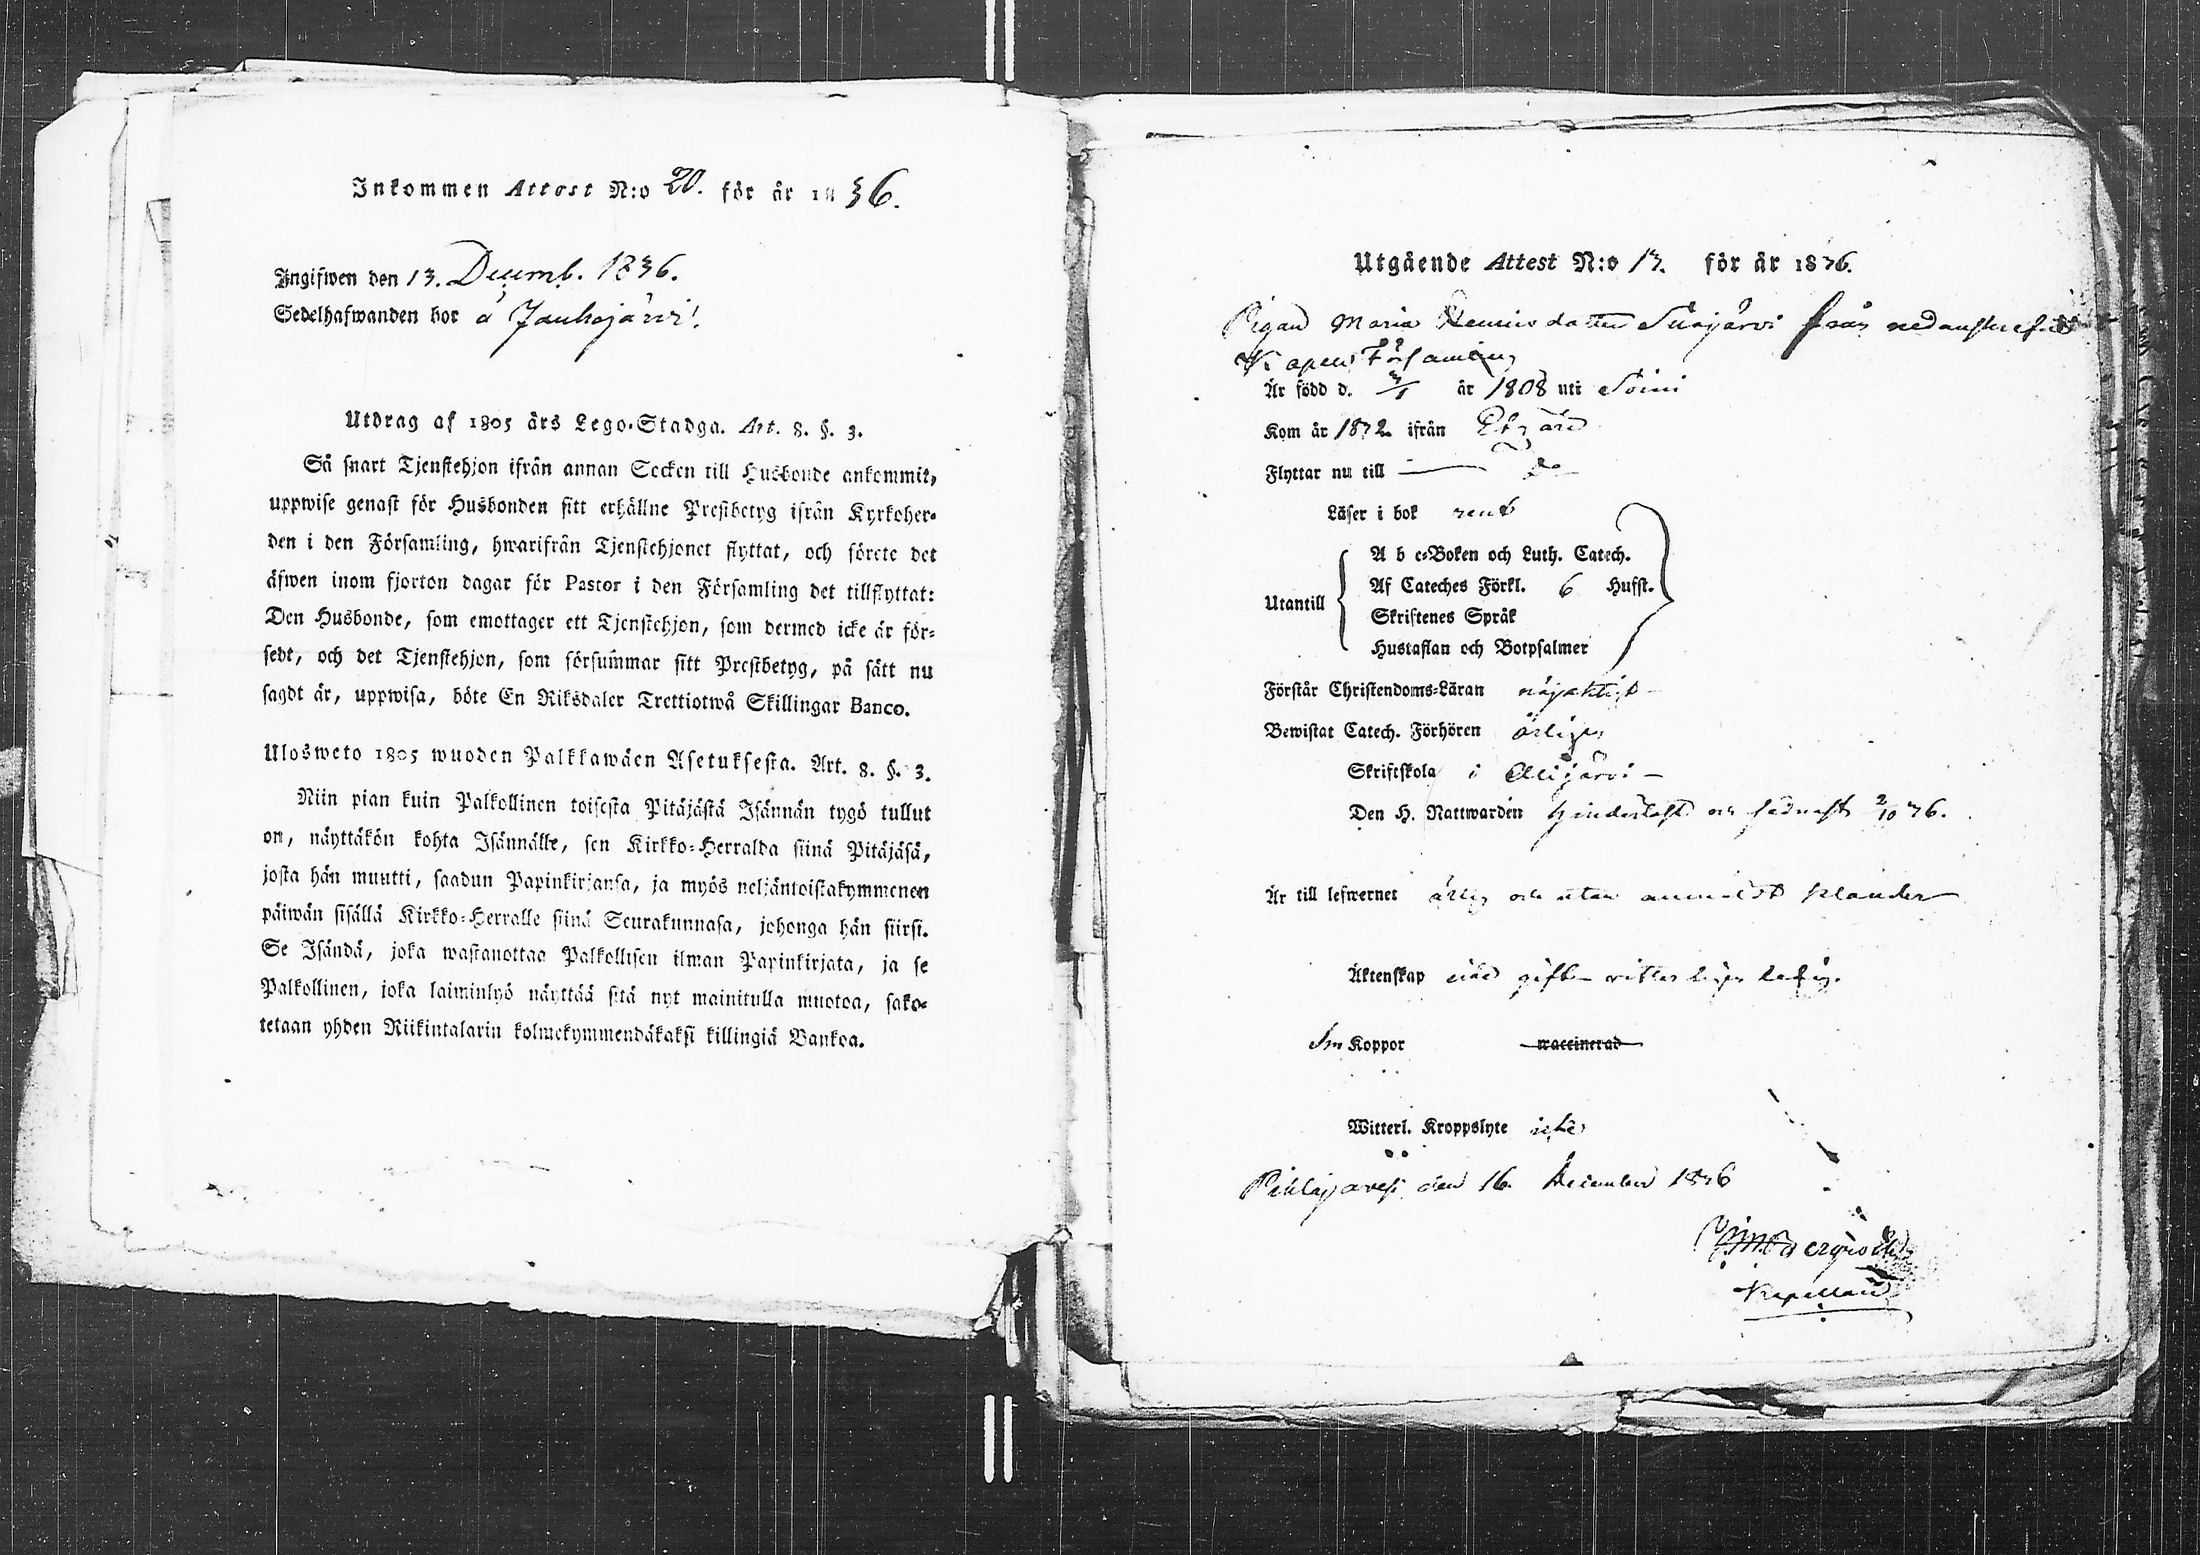 Inkommen Attest N:o 20. för år 1836.
Angifwen den 13. Decemb. 1836.
Sedelhafwanden bor å Jauhojärvi.
Utdrag af 1805 års Lego-Stadga. Art. 8. §. 3.
Så snart Tjenstehjon ifrån annan Socken till Husbonde ankommit,
uppwise genast för Husbonden sitt erhållne Prestbetyg ifrån Kyrkoher-
den i den Församling, hwarifrån Tjenstehjonet flyttat, och förete det
äfwen inom fjorton dagar för Pastor i den Församling det tillflyttat:
Den Husbonde, som emottager ett Tjenstehjon, som dermed icke är för-
sedt, och det Tjenstehjon, som försummar sitt Prestbetyg, på sätt nu
sagdt är, uppwisa, böte En Riksdaler Trettiotwå Skillingar Banco.
Ulosweto 1805 wuoden Palkkawäen Asetuksesta. Art. 8. §. 3.
Niin pian kuin Palkollinen toisesta Pitäjästä Isännän tygö tullut
on, näyttäkön kohta Isännälle, sen Kirkko-Herralda siinä Pitäjäsä,
josta hän muutti, saadun Papinkirjansa, ja myös neljäntoistakymmenen
päiwän sisällä Kirkko-Herralle siinä Seurakunnasa, johonga hän siirsi.
Se Isändä, joka wastanottaa Palkollisen ilman Papinkirjata, ja se
Palkollinen, joka laiminlyö näyttää sitä nyt mainitulla muotoa, sako-
tetaan yhden Riikintalarin kolmekymmendäkaksi killingiä Bankoa.
Utgående Attest N:o 13. för år 1836.
Pigan Maria dotter från
Capell Församling
Är född d. 3/1 år 1808 uti Soini
Kom år 1832 ifrån Etzäri
Flyttar nu till — Do
Läser i bok rent
Utantill
A b c-Boken och Luth. Catech.
Af Cateches Förkl. 6 Hufst.
Skriftenes Språk
Hustaflan och Botpsalmer
Förstår Christendoms-Läran nöjaktigt
Bewistat Catech. Förhören årligen
Skriftskola i Alajärvi
Den H. Nattwarden och sednast 2/10 36.
Är till lefwernet ärlig och utan anmäldt klander
Äktenskap
Koppor waccinerad
Witterl. Kroppslyte icke
Pihlajavesi den 16. December 1836
Kapellan